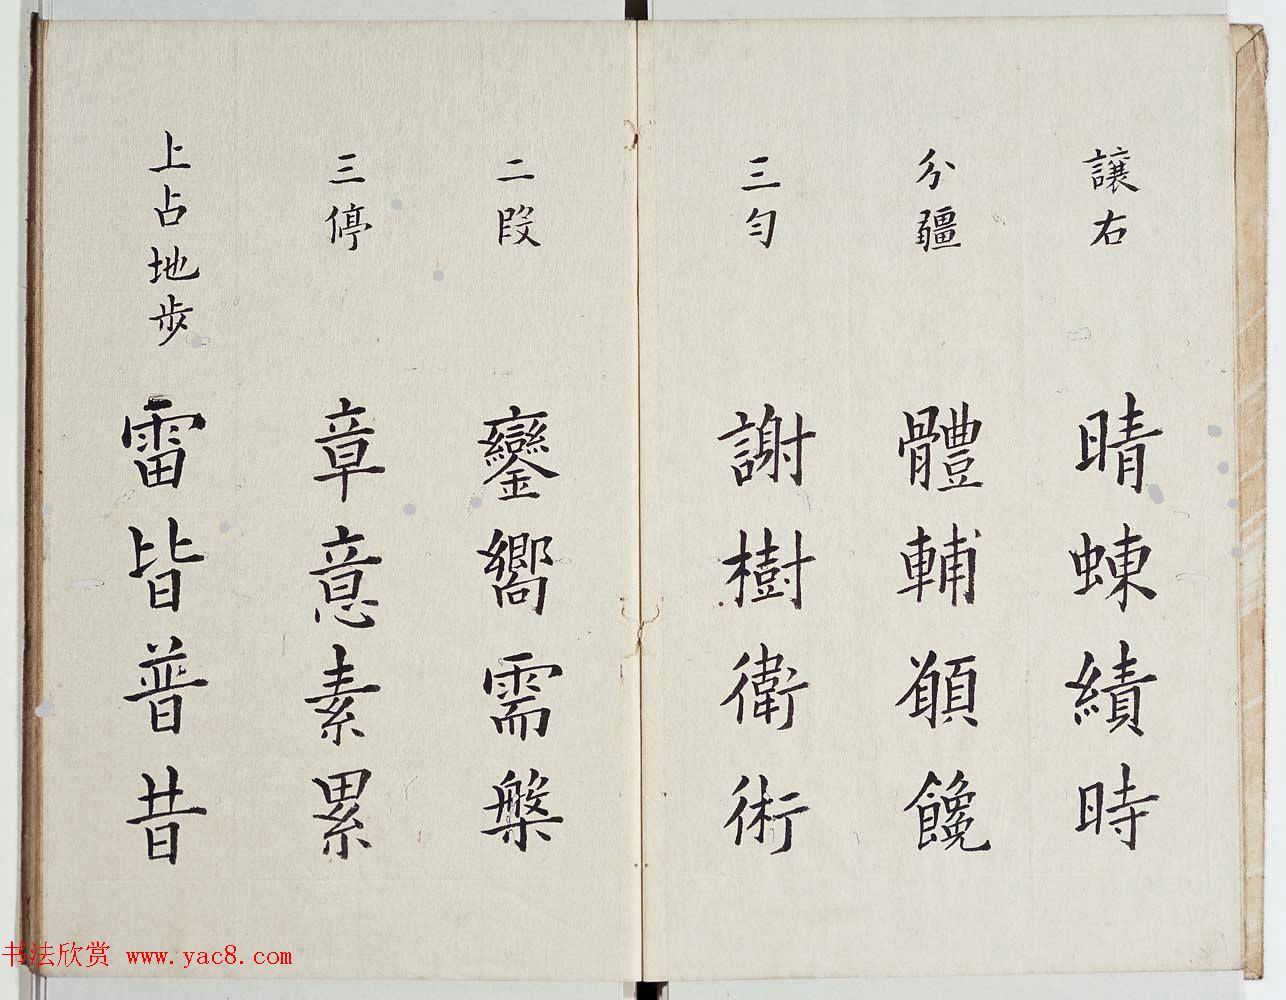 讓右 晴蝀績時
分疆 體輔願
三勻 謝樹衛術
二段 鑾嚮需槃
三停 章意素累
上占地步 雷皆普昔
书法欣赏 www.yac8.com